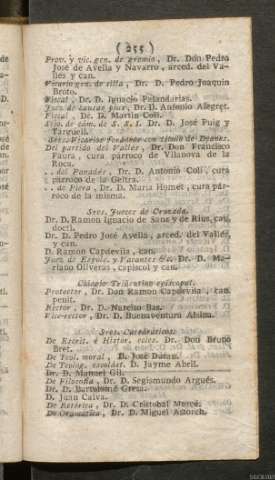 ( 255 )
Prov. y vic. gen. de premio, Dr. Don Pedro
José de Avella y Navarro, arced. del Va-
llés y can.
Vicario gen. de silla, Dr. D. Pedro Joaquin
Broto.
Fiscal, Dr. D. Ignacio Palaudarias.
Juez de causas pias, Dr. D. Antonio Alegret.
Fiscal, Dr. D. Martin Coll.
Srio. de cám. de S. S. I. Dr. D. José Puig y
Tarquell.
Sres. Vicarios Foráneos con título de Deanes.
Del partido del Vallés, Dr. Don Francisco
Faura, cura párroco de Vilanova de la
Roca.
. . del Panadés, Dr. D. Antonio Coll, cura
párroco de la Geltrú.
. . de Piera, Dr. D. Maria Homet, cura pár-
roco de la misma.
Sres. Jueces de Cruzada.
Dr. D. Ramon Ignacio de Sans y de Rius, can.
doctl.
Dr. D. Pedro José Avella, arced. del Vallés,
y can.
D. Ramon Capdevila, can.
Juez de Espols. y Vacantes &c. Dr. D. Ma-
riano Oliveras, capiscol y can.
Colegio Tridentino episcopal.
Protector, Dr. Don Ramon Capdevila, can.
penit.
Rector, Dr. D. Narciso Bas.
Vice-rector, Dr. D. Buenaventura
Sres. Catedráticos.
De Escrit. é Histor. ecles. Dr. Don Bruno
Bret.
De Teol. moral, D. José Duran.
De Teolog. escolást. D. Jayme Abril.
Dr. D. Manuel Gil.
De Filosofía, Dr. D. Segismundo Argués.
Dr. D. Bartolomé Gresa.
D. Juan Calva.
De Retórica, Dr. D. Cristobal Marcé.
De Gramática, Dr. D. Miguel